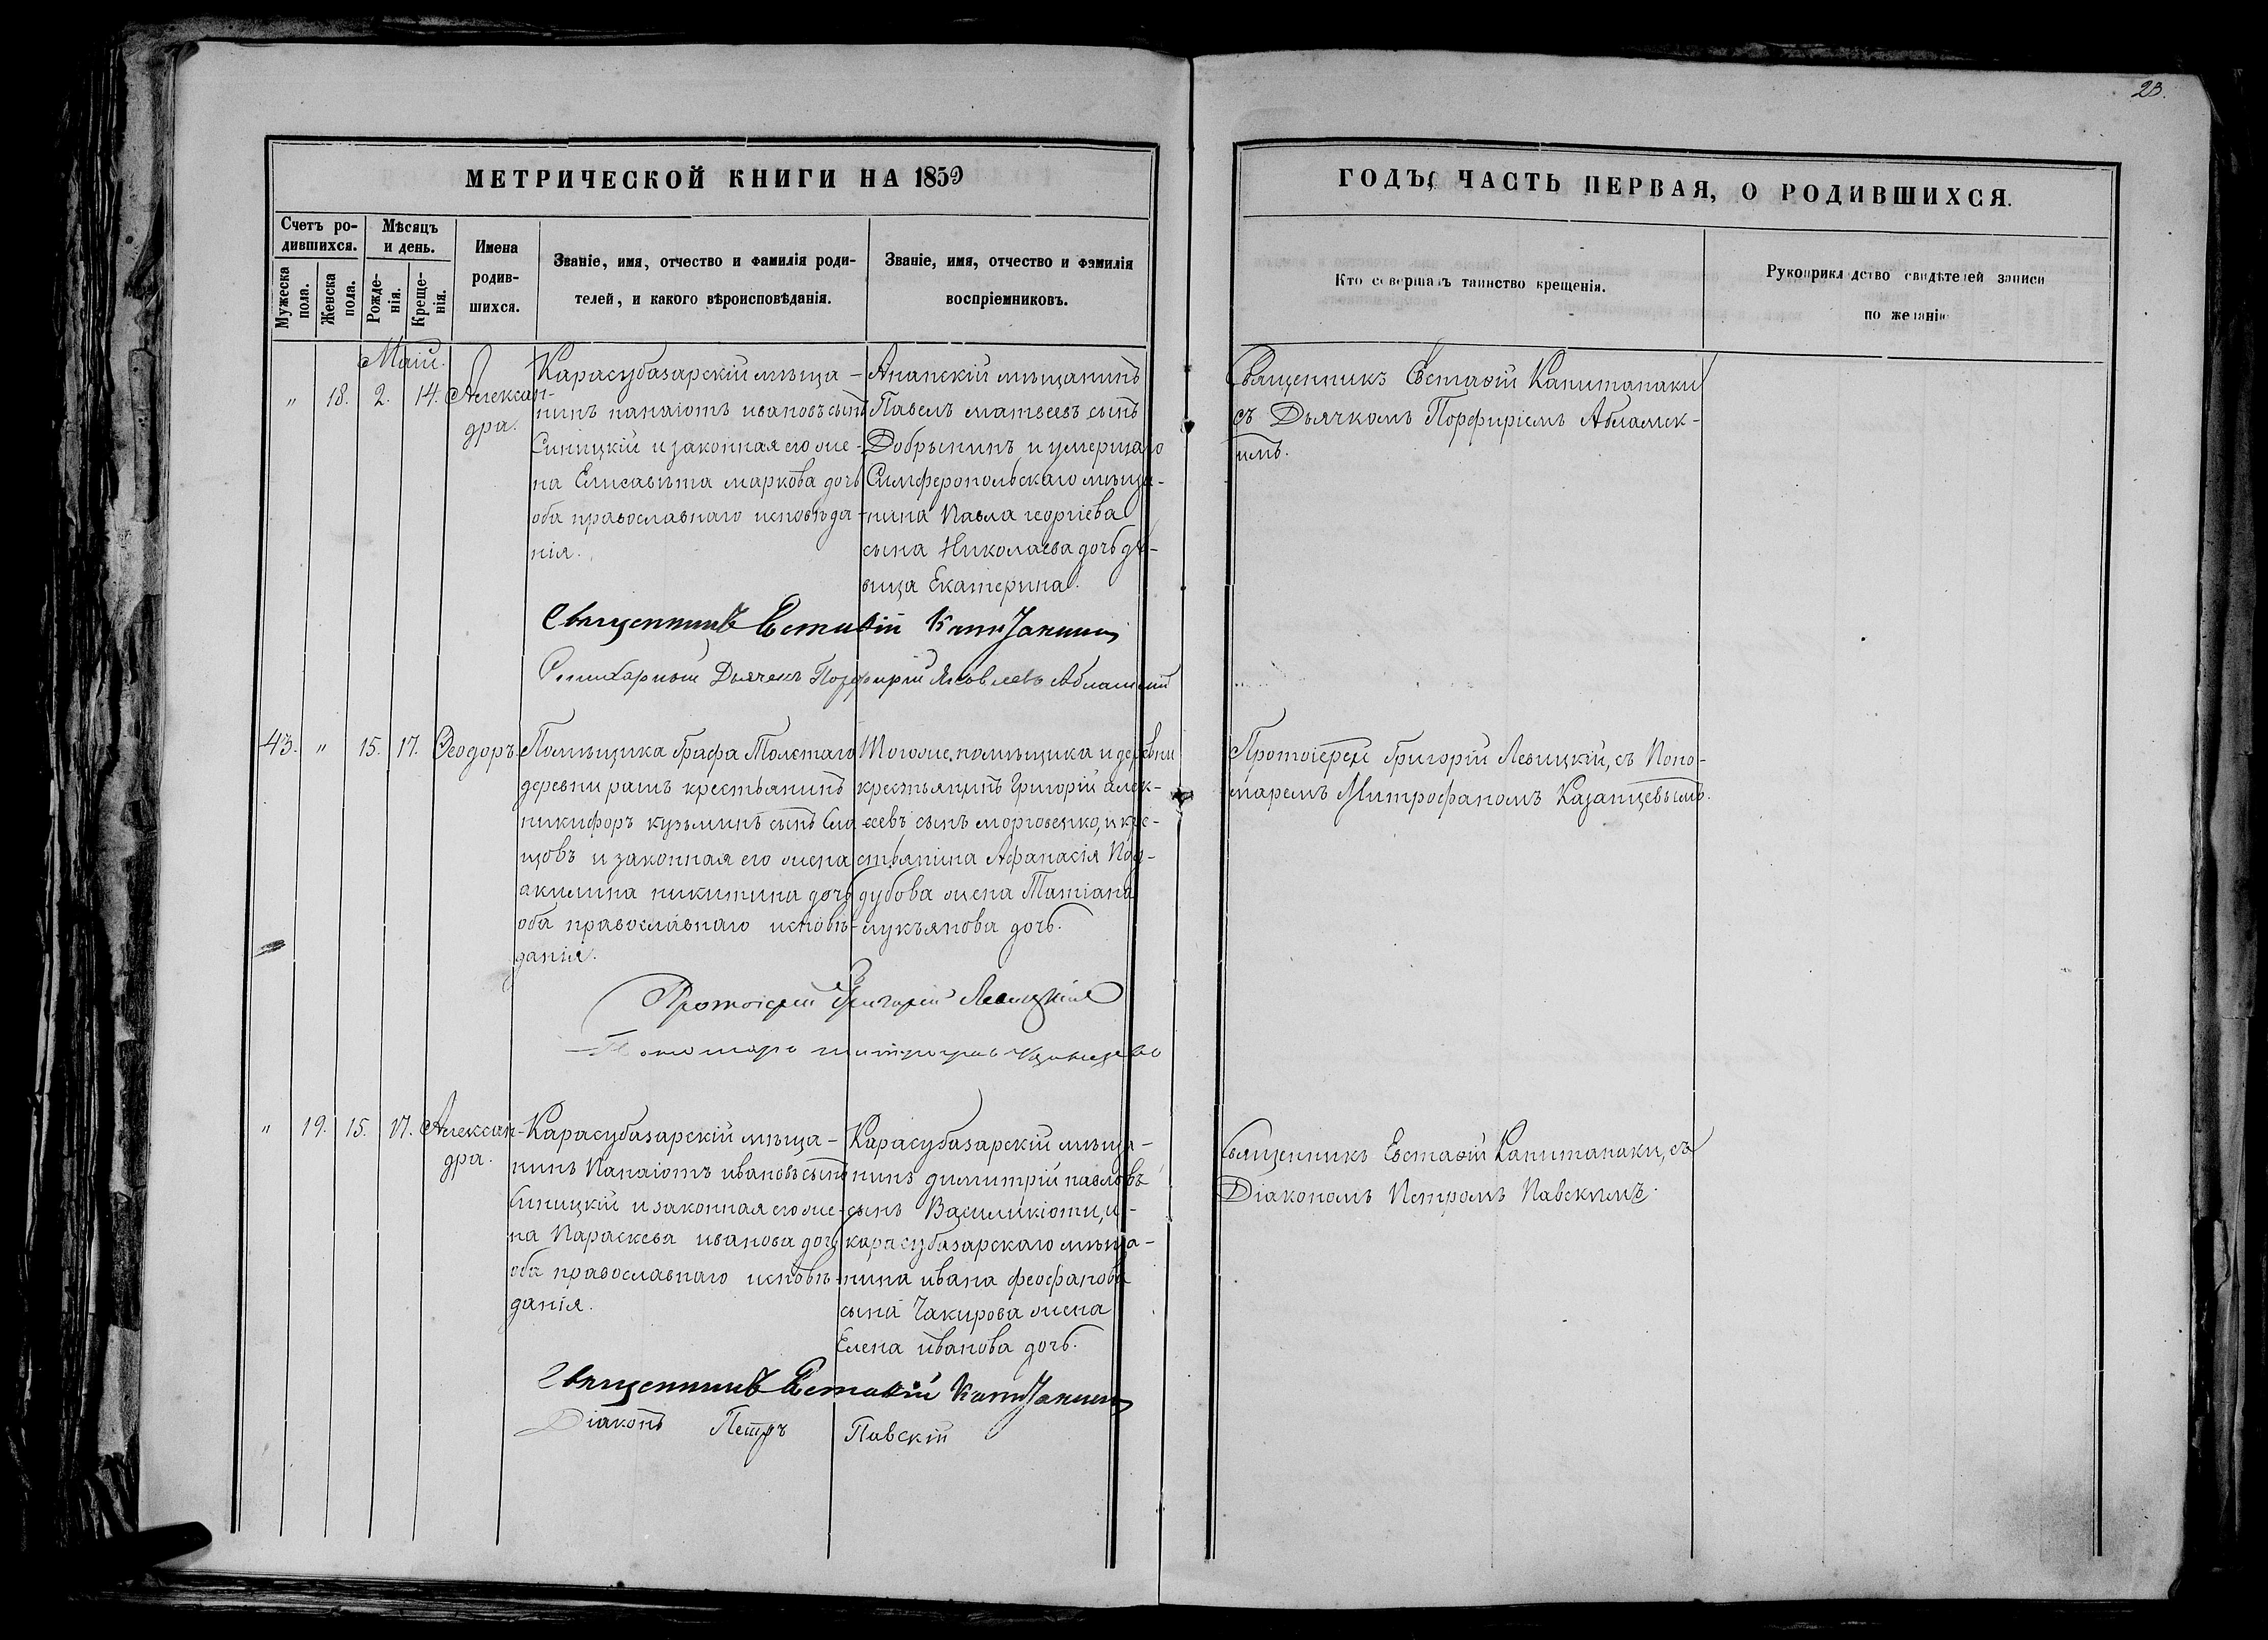 23.
МЕТРИЧЕСКОЙ КНИГИ НА 1859
ГОДЪ, ЧАСТЬ ПЕРВАЯ, О РОДИВШИХСЯ.
Счетъ ро-
дившихся.
Мужеска
пола.
Женска
пола.
Мѣсяцъ
и день.
Рожде-
нія.
Креще-
нія.
Имена
родив-
шихся.
Званіе, имя, отчество и фамилія роди-
телей, и какого вѣроисповѣданія.
Званіе, имя, отчество и фамилія
воспріемниковъ.
Кто совершалъ таинство крещенія.
Рукоприкладство свидѣтелей записи
по желанію
Маій.
" 18. 2. 14. Алексан-
дра.
Карасубазарскій мѣща-
нинъ панаіотъ ивановъ сынъ
Синицкій и законная его же-
на Елисавѣта маркова дочь
оба православнаго исповѣда-
нія.
Анапскій мѣщанинъ
Павелъ матвеевъ сынъ
Добрынинъ и умершаго
Симферопольскаго мѣща-
нина Павла георгіева
сына Николаева дочь дѣ-
вица Екатерина.
Священникъ Евстафій Капитанаки
съ Дьячкомъ Порфиріемъ Абламск-
имъ.
Священникъ Евстафій Капитанаки
Дьячекъ Порфирій Яковлевъ Абламскій
43. " 15. 17. Ѳеодоръ.
Помѣщика Графа Толстаго
деревни рашъ крестьянинъ
никифоръ кузьминъ сынъ Сла-
щовъ и законная его жена
акилина никитина дочь
оба православнаго исповѣ-
данія.
Тогоже помѣщика и деревни
крестьянинъ Григорій алек-
сеевъ сынъ морговенко, и кре-
стьянина Афанасія Под-
дубова жена Татіана
лукъянова дочь.
Протоіерей Григорій Левицкій, съ Поно-
маремъ Митрофаномъ Казанцевымъ.
Протоіерей Григорій Левицкій
Пономарь Митрофанъ Казанцевъ
" 19. 15. 17. Алексан-
дра.
Карасубазарскій мѣща-
нинъ Панаіотъ ивановъ сынъ
Синицкій и законная его же-
на Параскева иванова дочь
оба православнаго исповѣ-
данія.
Карасубазарскій мѣща-
нинъ димитрій павловъ
сынъ Василикіоти, и-
карасубазарскаго мѣща-
нина ивана феофанова
сына Чакирова жена
Елена иванова дочь.
Священникъ Евстафій Капитанаки, съ
Діакономъ Петромъ Павскимъ.
Священникъ Евстафій Капитанаки
Діаконъ Петръ Павскій